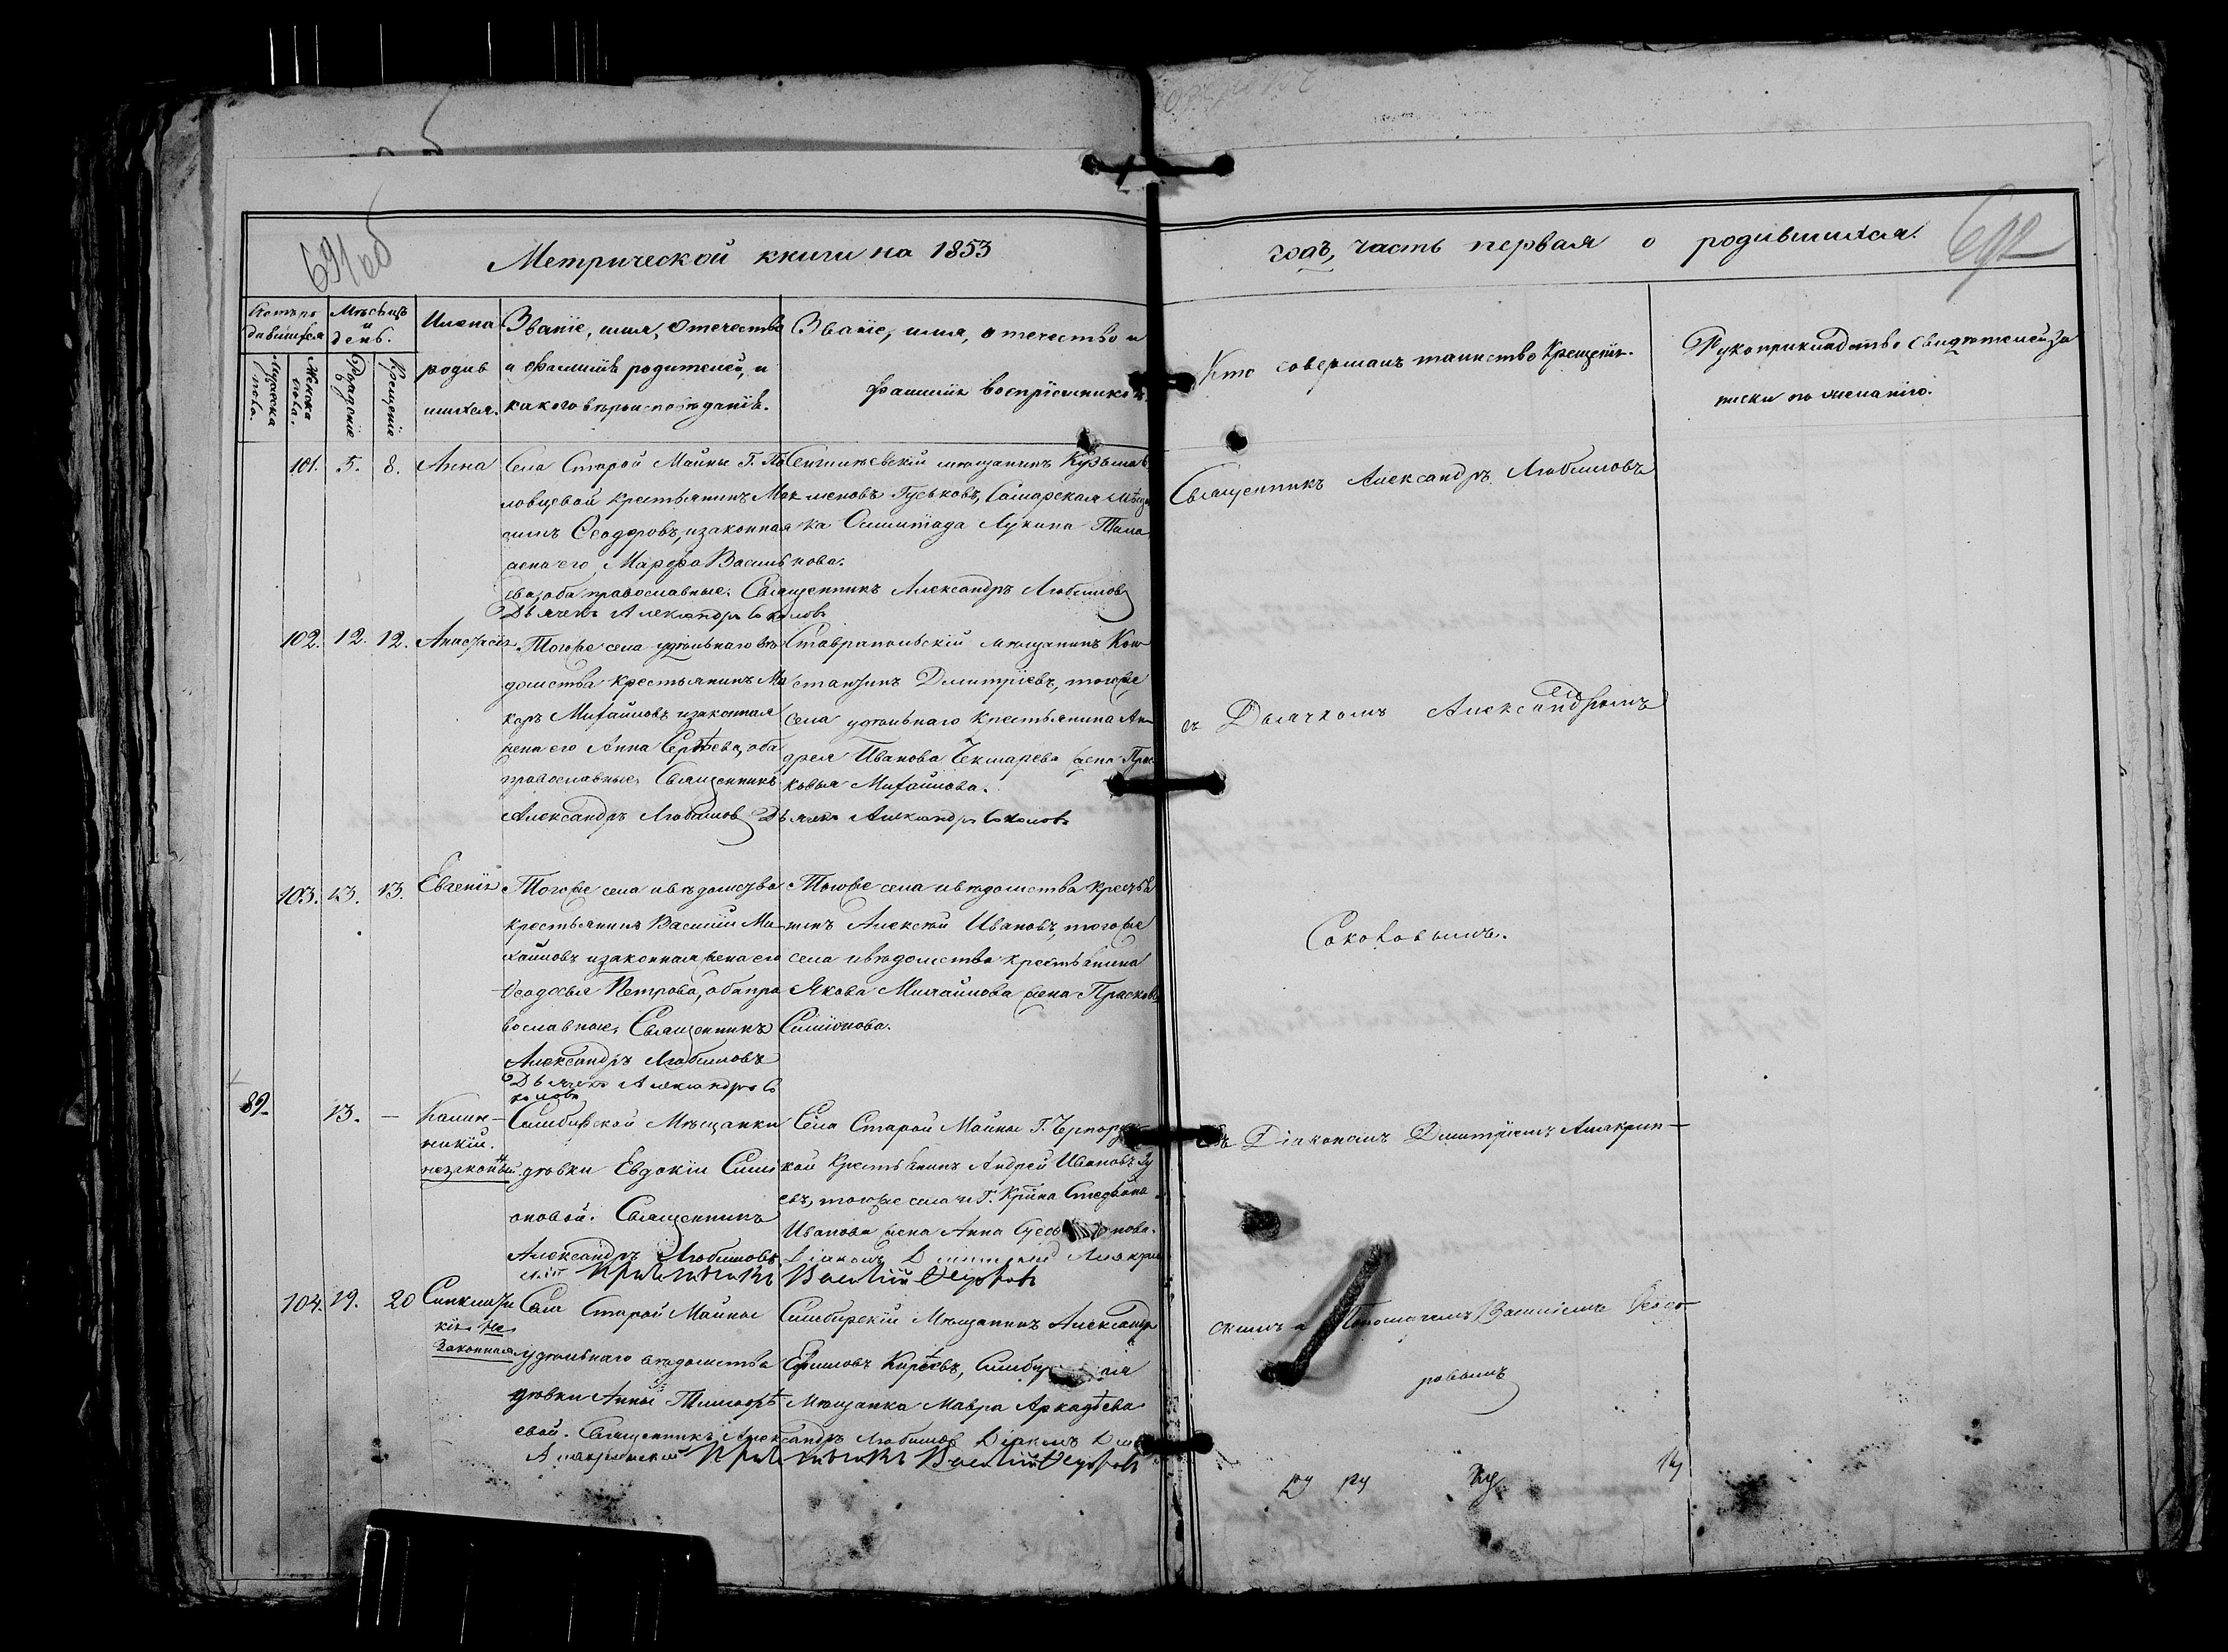 691 об
692
Метрической книги на 1853
годъ, часть первая о родившихся.
Мѣсяцъ и день.
Мужеска пола.
Женска пола.
Рожденіе
Крещеніе
Имена родив шихся.
Званіе, имя, отечество
и фамилія родителей, и
какого вѣроисповѣданія.
Званіе, имя, отечество и
фамилія воспріемниковъ
Кто совершалъ таинство Крещенія.
Рукоприкладство свидѣтелей за
писки по желанію.
101. 5. 8. Анна
Села Старой Майны Г. По
ловцевой крестьянинъ Мак
симъ Ѳеодоровъ, и законная
жена его Марфа Василь
ева оба православные. Священникъ Александръ Любимовъ
Дьячекъ Александръ Соколовъ
Кузьма
Гуськовъ, Самарская мѣщан
ка Олимпіада Лукина
нова.
Священникъ Александръ Любимовъ
102. 12. 12. Анастасія
Тогоже села удѣльнаго вѣ
домства крестьянинъ Ма
каръ Михайловъ и законная
жена его Анна Сергѣева, оба
православные. Священникъ
Александръ Любимовъ Дьячекъ Александръ Соколовъ
Ставропольскій мѣщанинъ Кон
стантинъ Димитріевъ, тогоже
села удѣльнаго крестьянина Ан
дрея Иванова Чекмарева жена Прас
ковья Михайлова.
съ Дьячкомъ Александромъ
103. 13. 13. Евгенія
Тогоже села и вѣдомства
крестьянинъ Василій Ми
хайловъ и законная жена его
Ѳеодосья Петрова, оба пра
вославные. Священникъ
Александръ Любимовъ
Дьячекъ Александръ Со
коловъ
Тогоже села и вѣдомства крестья
нинъ Алексѣй Ивановъ, тогоже
села и вѣдомства крестьянина
Якова Михайлова жена Прасковья
Симіонова.
Соколовымъ.
89. 13. —
незаконный
Симбирской Мѣщанки
дѣвки Евдокіи Сими
оновой. Священникъ
Александръ Любимовъ
Села Старой Майны Г.
кой крестьянинъ Андрей Ивановъ
евъ, тогоже села и Г. Кр̃нина Стефана
Иванова жена Анна
Діаконъ Димитрій
Василій Ѳедоровъ
Діакономъ Димитріемъ Амакрин—
104. 19. 20 Синклити
кія Не
законная
Села Старой Майны
удѣльнаго вѣдомства
дѣвки Анны Тимофѣ
евой. Священникъ Александръ Любимовъ Діаконъ
Василій Ѳедоровъ
Симбирскій Мѣщанинъ Александръ
Ефимовъ Кирѣевъ,
Мѣщанка Мавра Аркадѣева
скимъ и Пономаремъ Василіемъ Ѳедо—
ровымъ